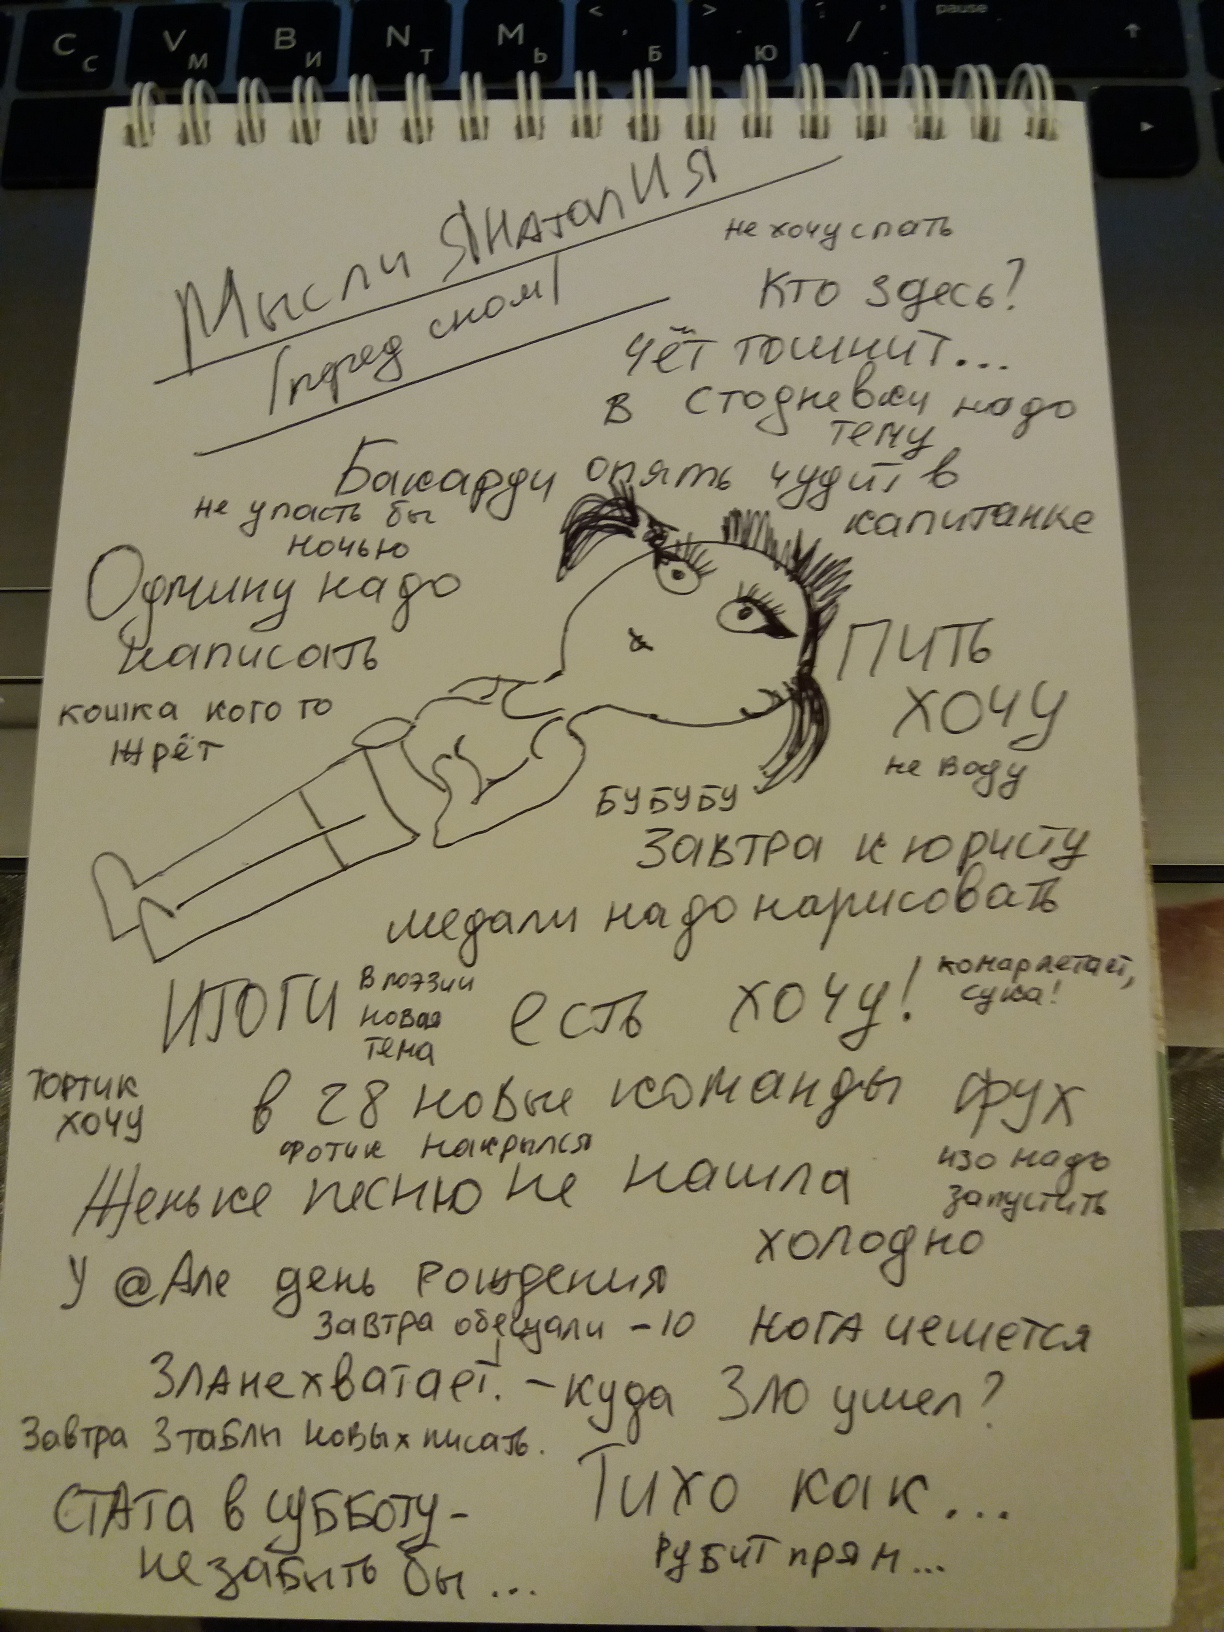 C С V М B И N Т M Ь < , Б > . Ю : ; / pause
Мысли ЯНатаПИЯ
/перед сном/
не хочу спать
Кто здесь?
Чёт тошнит...
в стодневки надо
тему
Бакарди опять чудит в
капитанке
не упасть бы
ночью
Одмину надо
написать
кошка кого то
жрёт
ПИТЬ
ХОЧУ
не воду
БУБУБУ
Завтра к юристу
медали надо нарисовать
ИТОГИ
В поэзии
новая
тема
есть хочу!
комар летает,
сука!
ТОРТИК
ХОЧУ
в 28 новые команды фух
ФОТИК НАКРЫЛСЯ
Женьке песню не нашла
изо надо
запустить
холодно
У @Але день рождения
Завтра обещали -10
НОГА чешется
ЗЛА не хватает. - куда Зло ушел?
Завтра 3 таблы новых писать.
СТАТА в субботу -
не забыть бы...
Тихо как...
РУБИТ прям...